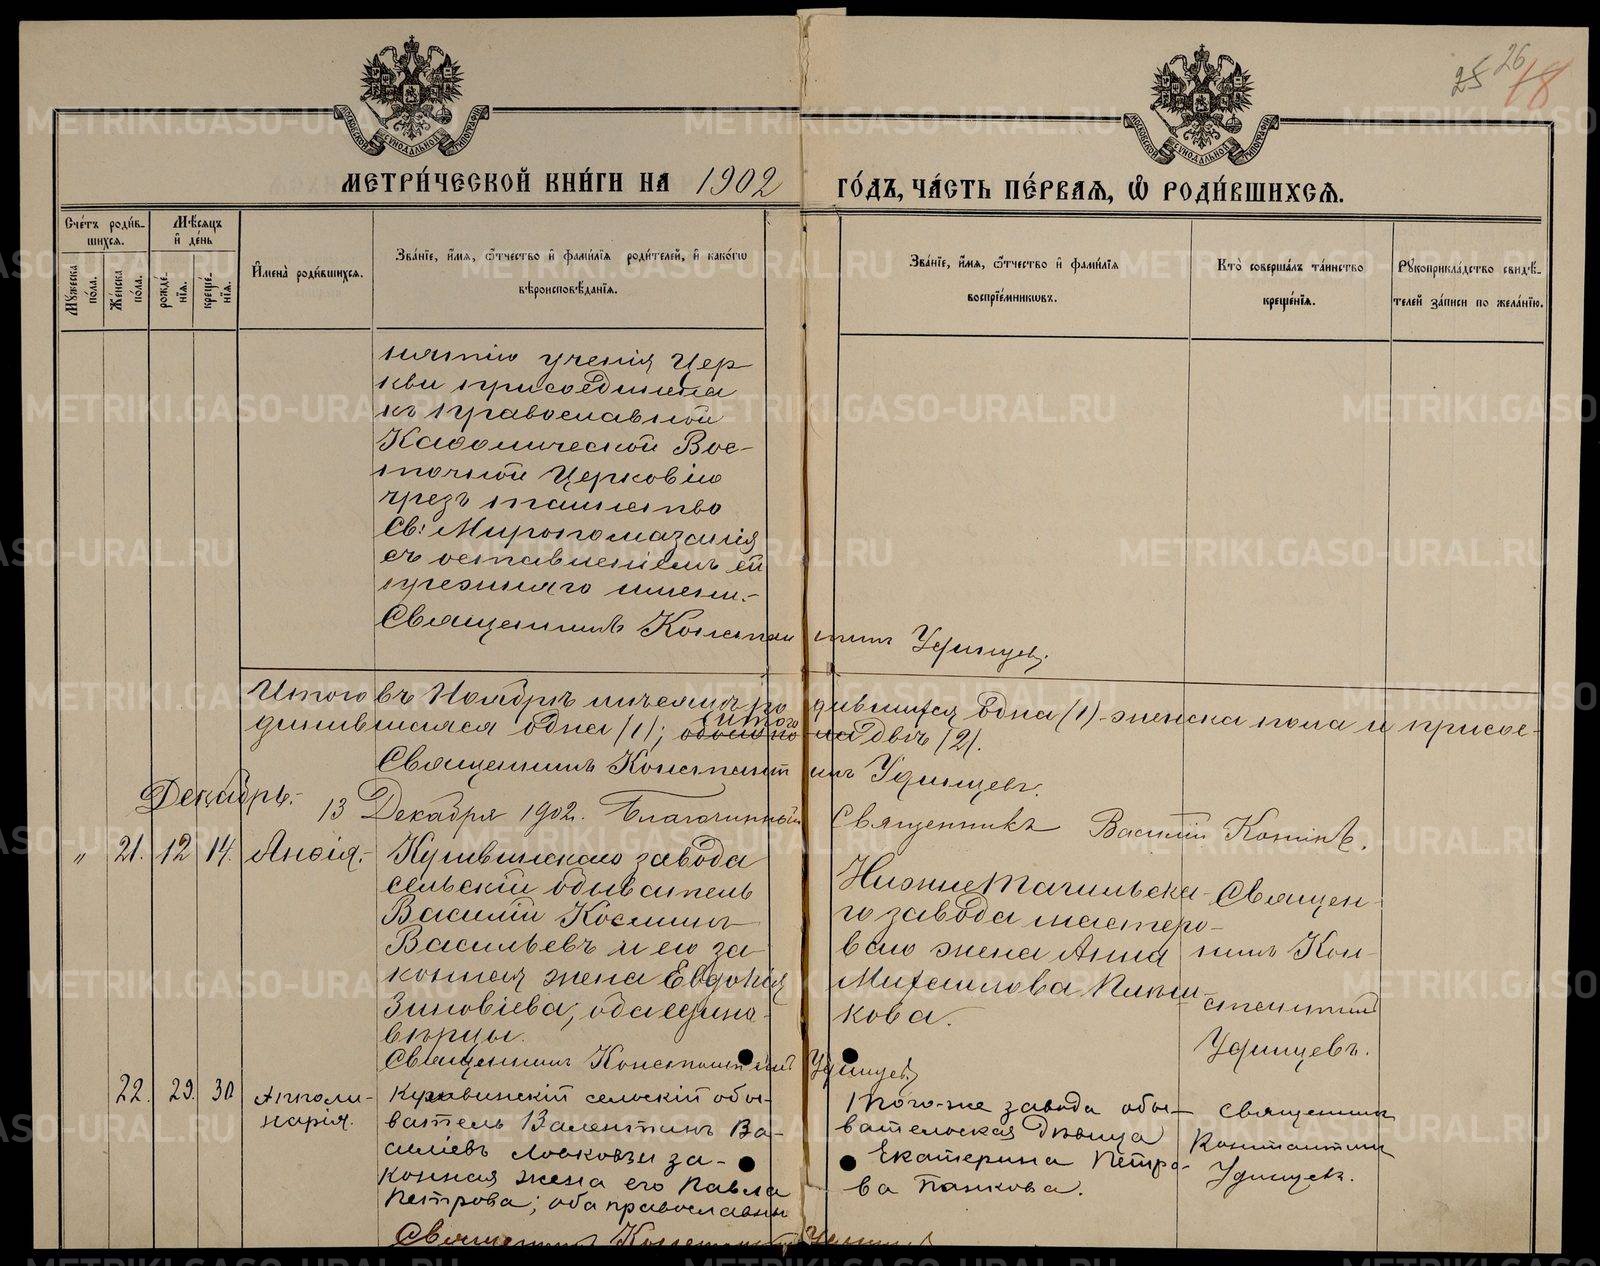 25 26 18
МЕТРИ́ЧЕСКОЙ КНИ́ГИ НА 1902 ГО́ДЪ, ЧА́СТЬ ПЕ́РВАЯ, Ѽ РОДИ́ВШИХСЯ.
Сче́тъ роди́в-
шихся.
Мѣсяцъ
и де́нь
Мужеска
по́ла.
Же́нска
по́ла.
рожде́-
нїя.
креще́-
нїя.
Имена̀ роди́вшихся.
Зва́нїе, и́мя, ѻ́тчество и фами́лїя роди́телей, и како́гѡ
вѣроисповѣ́данїя.
Зва́нїе, и́мя, ѻ́тчество и фами́лїя
воспрїе́мникѡвъ.
Кто̀ соверша́лъ та́инство
креще́нїя.
Рукоприкла́дство свидѣ́-
телей за́писи по жела́нїю.
нятію ученія Цер
кви присоединена
къ православной
Каѳолической Вос-
точной Церковію
чрезъ таинство
Св: Миропомазанія
съ оставленіемъ ей
прежняго имени.-
Священникъ Константинъ Удинцевъ.
Итого въ Ноябрѣ мѣсяцѣ родившихся одна (1) женска пола и присое-
динившаяся одна (1); итого двѣ (2).
Священникъ Константинъ Удинцевъ.
Декабрь.-
13 Декабря 1902. Благочинный Священникъ Василій
„ 21. 12 14. Анѳія.-
Кушвинскаго завода
сельскій обыватель
Василій Косминъ
Васильевъ и его за
конная жена Евдокія
Зиновіева; оба едино-
вѣрцы.
Нижнетагильска-
го завода мастеро-
ваго жена Анна
Михаилова
кова.
Священ-
никъ Кон-
стантинъ
Удинцевъ.
Священникъ Константинъ Удинцевъ
22. 29. 30
Апполи-
нарія.
Кушвинскій сельскій обы-
ватель Валентинъ Ва-
силіевъ за-
конная жена его Павла
Петрова; оба православны
Того-же завода обы-
вательская дѣвица
Екатерина Петро-
ва Панкова.
Священникъ
Константинъ
Удинцевъ.
Священникъ Константинъ Удинцевъ